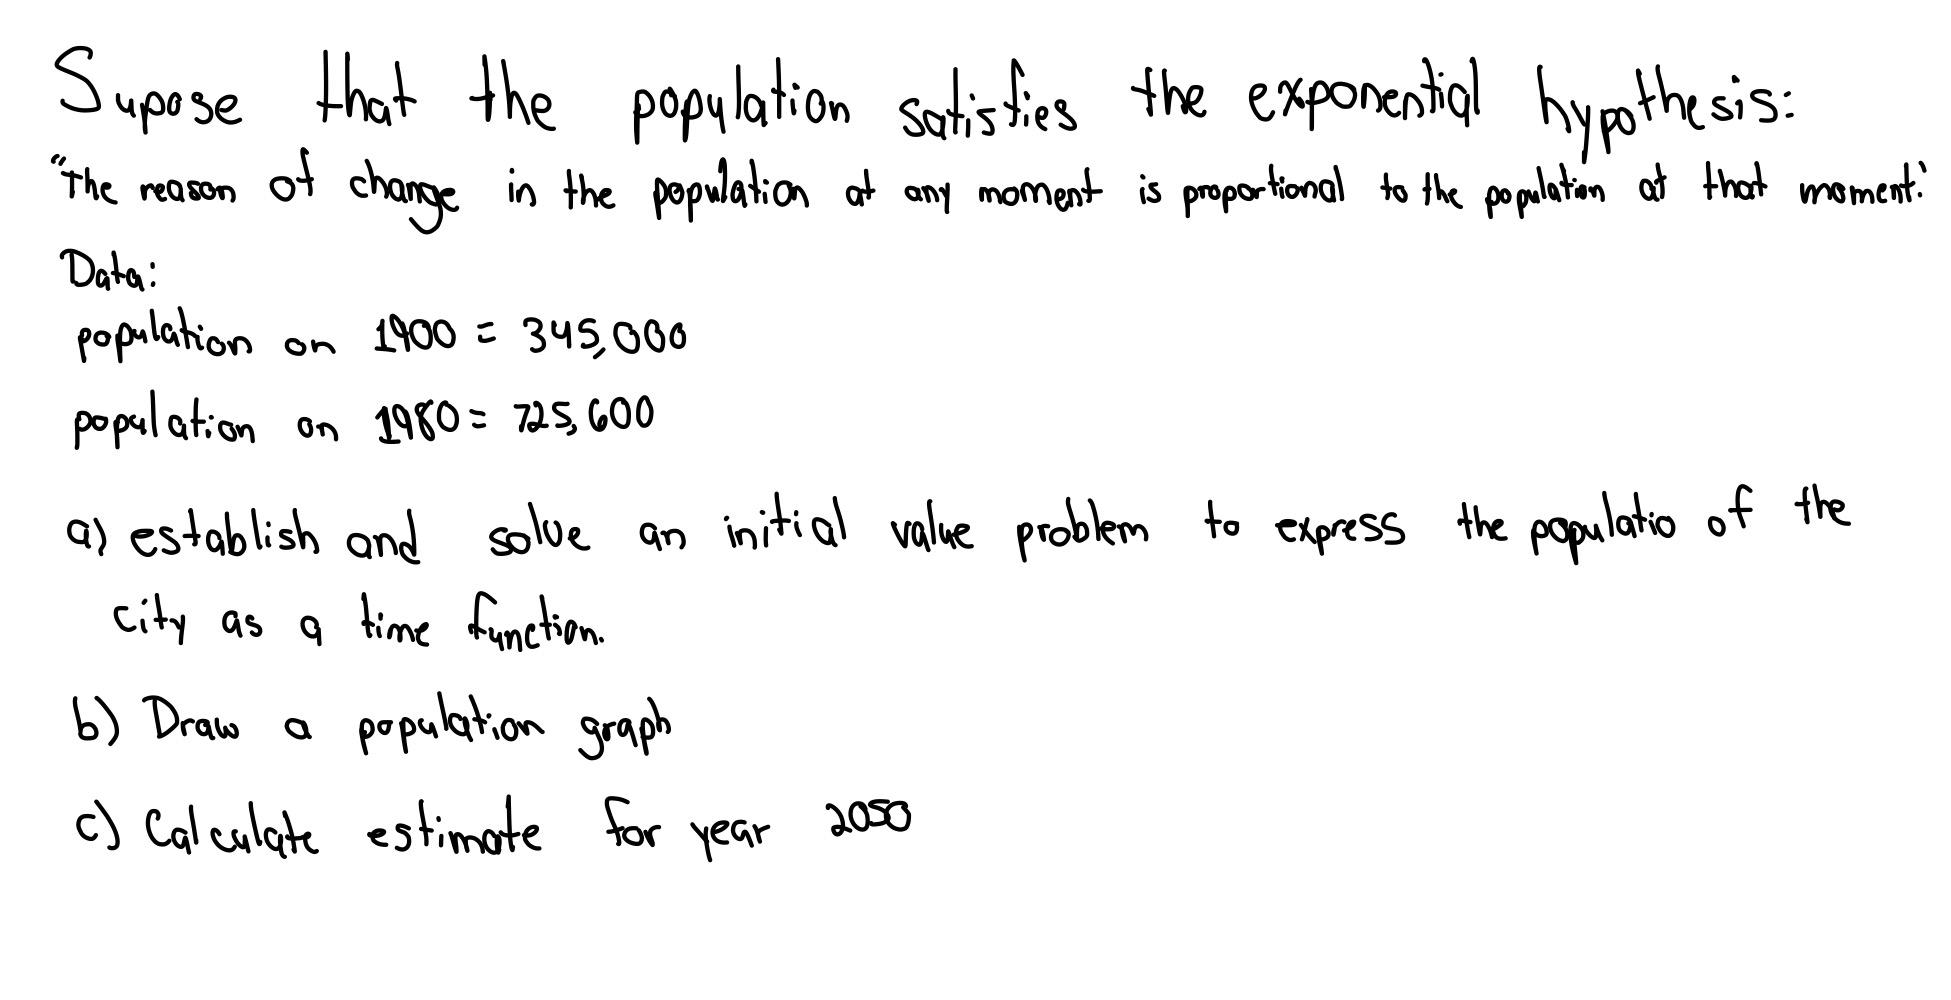 Supose that the population satisfies the exponential hypothesis:
"The reason of change in the population at any moment is proportional to the population at that moment."
Data:
population on 1900 = 345,000
population on 1980 = 725,600
a) establish and solve an initial value problem to express the populatio of the
city as a time function.
b) Draw a population graph
c) Calculate estimate for year 2050